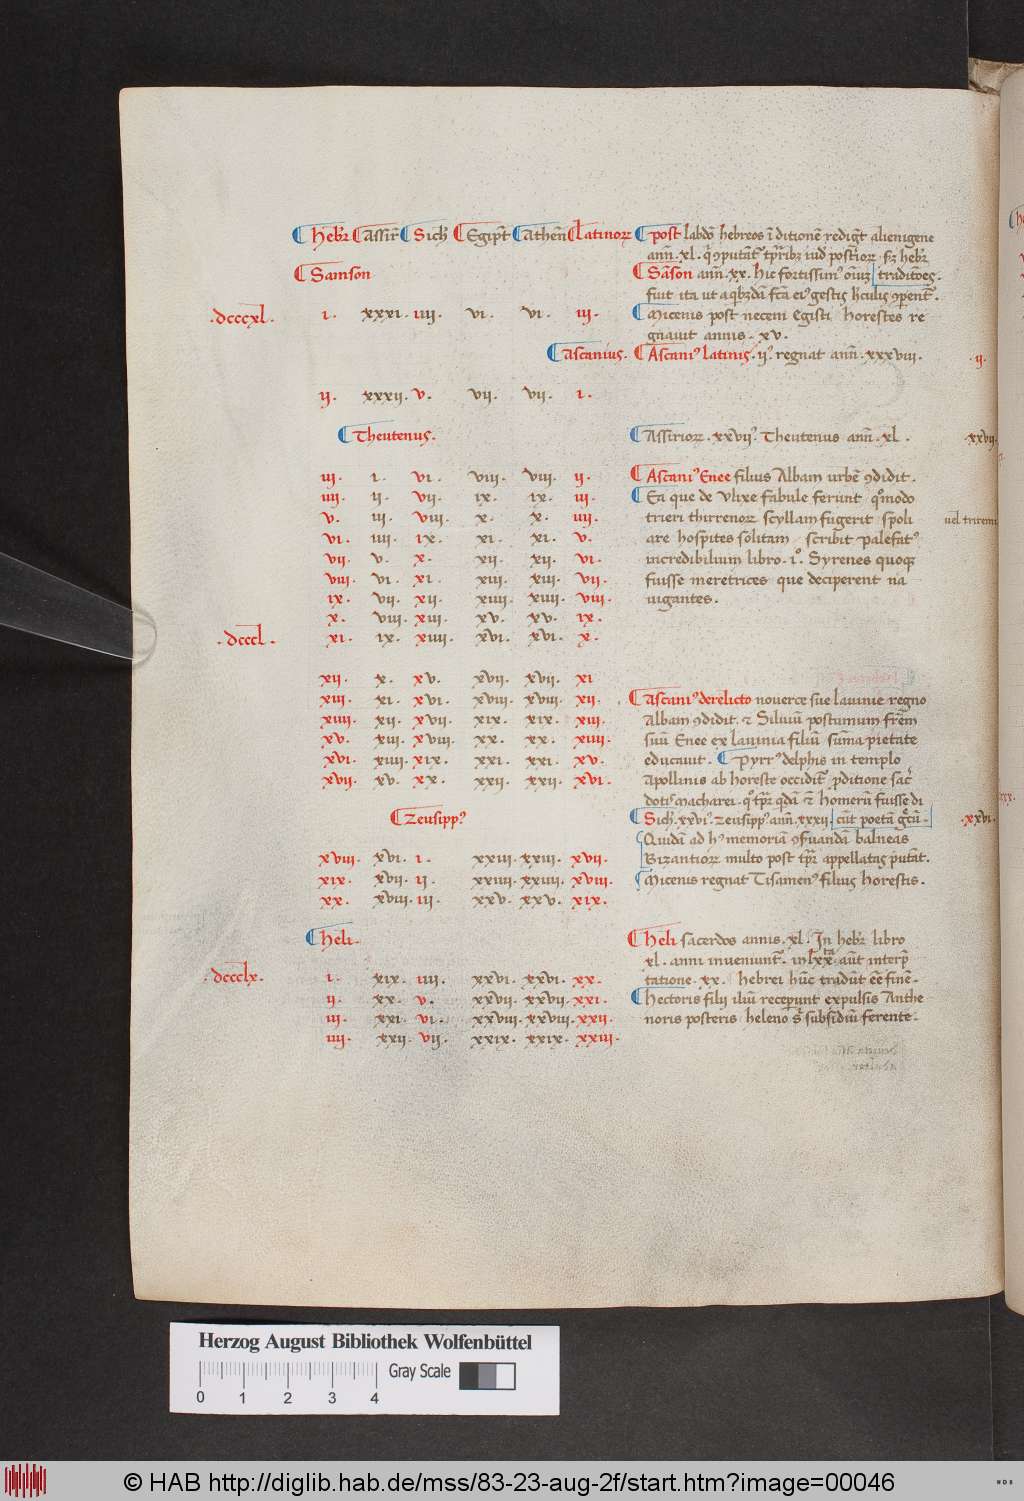 Hebr̄ Assir̄ Sich̄ Egipt̄ Athen̄ Latinoꝝ post labdō hebreos ī ditionē redigūt alienigene
ann̄ · xl · q̄ ꝯputāt̄ tp̄ribꝫ iud̄ postrioꝝ · scd̄ hebr̄
Samson Sāson ann̄ · xx · hic fortissimꝰ oīuꝫ traditōes ·
fuit ita ut a quibꝫdā fc̄a eiꝰ gestis hr̄culis ꝯparent̄ ·
· dcccxl · i · xxxi · iiii · vi · vi · iii · Micenis post necem Egisti horestes re
gnauit annis · xv ·
Ascanius · Ascaniꝰ latinis · iiꝰ · regnat ann̄ · xxxviii · · ii ·
ii · xxxii · v · vii · vii · i ·
Theutenus · Assirioꝝ · xxviiꝰ · Theutenus ann̄ · xl · · xxvii ·
iii · i · vi · viii · viii · ii · Ascaniꝰ Enee filius Albam urbē ꝯdidit ·
iiii · ii · vii · ix · ix · iii · Ea que de Vlixe fabule ferunt q̄modo
v · iii · viii · x · x · iiii · trieri thirrenoꝝ scyllam fugerit spoli uel triremi
vi · iiii · ix · xi · xi · v · are hospites solitam scribit Palefatꝰ
vii · v · x · xii · xii · vi · incredibilium libro · i° · Syrenes quoqꝫ
viii · vi · xi · xiii · xiii · vii · fuisse meretrices que deciperent na
ix · vii · xii · xiiii · xiiii · viii · uigantes ·
x · viii · xiii · xv · xv · ix ·
· dcccl · xi · ix · xiiii · xvi · xvi · x ·
xii · x · xv · xvii · xvii · xi
xiii · xi · xvi · xviii · xviii · xii · Ascaniꝰ derelicto nouerce sue lauinie regno
xiiii · xii · xvii · xix · xix · xiii · Albam ꝯdidit · ⁊ Siluiū postumum fr̄em
xv · xiii · xviii · xx · xx · xiiii · suū Enee ex lauinia filiū sūma pietate
xvi · xiiii · xix · xxi · xxi · xv · educauit · Pyrrꝰ delphis in templo
xvii · xv · xx · xxii · xxii · xvi · Apollinis ab horeste occidit̄ ꝓditione sac̄
dotis macharei · q° tp̄r quidā ⁊ homerū fuisse di
Zeusippꝰ Sich̄ · xxviꝰ · Zeusippꝰ ann̄ · xxxii · cūt poetā grecū · · xxvi ·
Quidā ad hꝰ memoriā ꝯfuandā balneas
xviii · xvi · i · xxiii · xxiii · xvii · Bizantioꝝ multo post tp̄r appellatas putāt ·
xix · xvii · ii · xxiiii · xxiiii · xviii · Micenis regnat Tisamenꝰ filius horestis ·
xx · xviii · iii · xxv · xxv · xix ·
Heli · Heli sacerdos annis · xl · In hebr̄ libro
xl · anni inueniunt̄ · in lxxᵗᵃ · aūt interp̄
· dccclx · i · xix · iiii · xxvi · xxvi · xx · tatione · xx · hebrei hūc tradūt eē finē ·
ii · xx · v · xxvii · xxvii · xxi · Hectoris filij iliū receperunt expulsis Anthe
iii · xxi · vi · xxviii · xxviii · xxii · noris posteris heleno s̄ subsidiū ferente ·
iiii · xxii · vii · xxix · xxix · xxiii ·
Herzog August Bibliothek Wolfenbüttel
Gray Scale
0 1 2 3 4
© HAB http://diglib.hab.de/mss/83-23-aug-2f/start.htm?image=00046